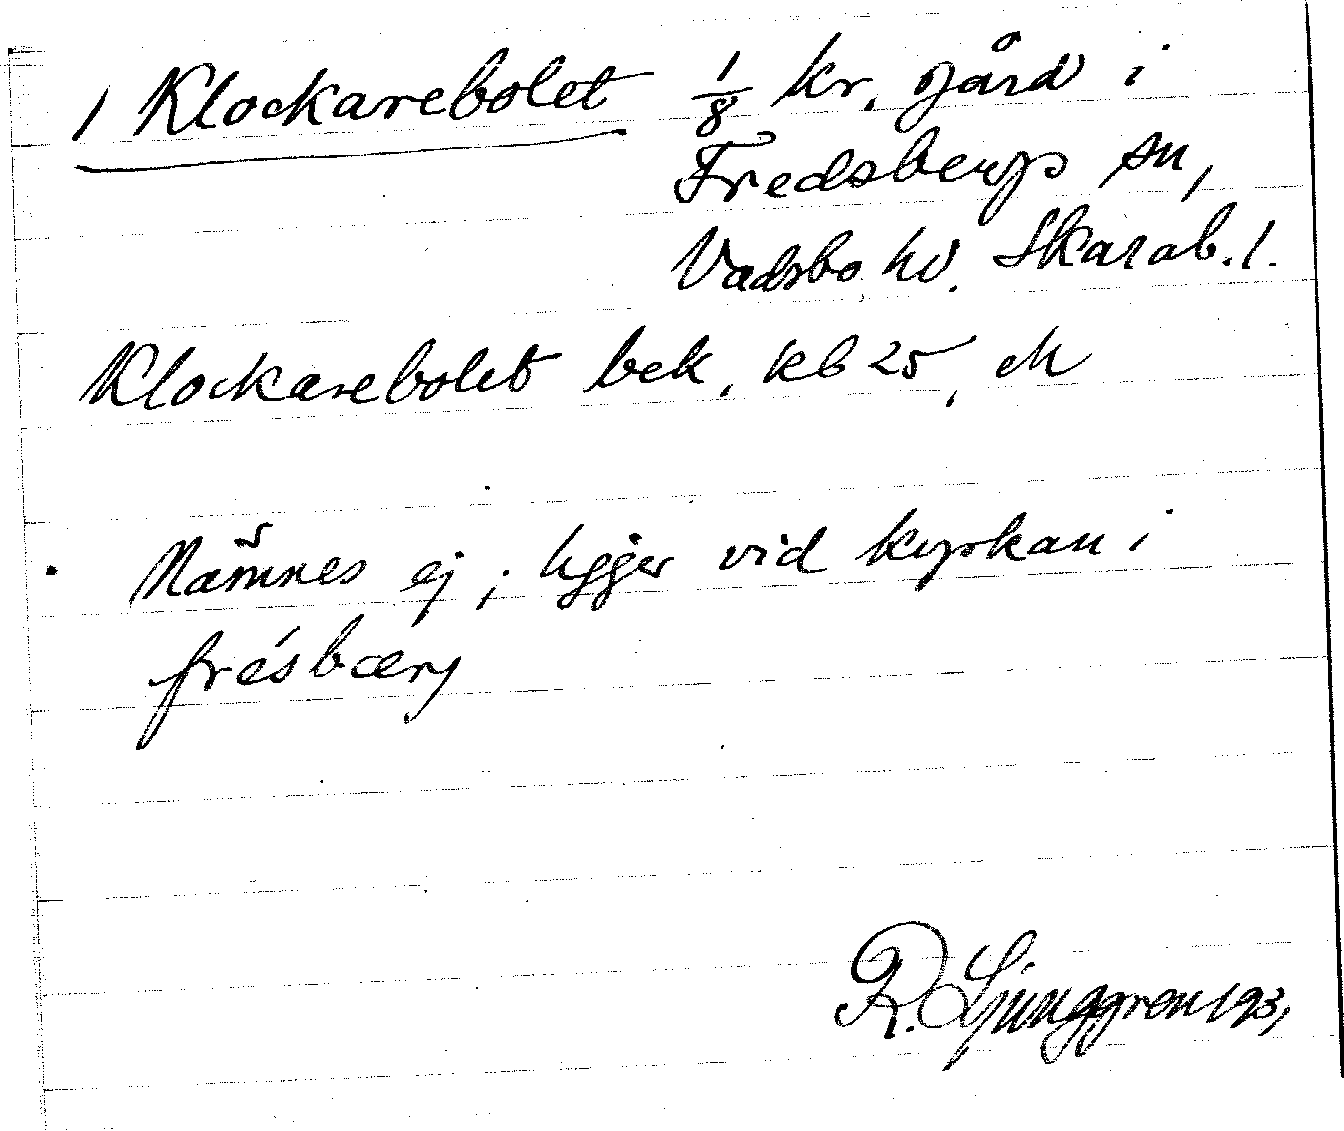 1 Klockarebolet 1/8 kr. gård i
Fredsbergs sn,
Vadsbo hd. Skarab. l.
Klockarebolet bek. kb 25, M
Nämnes ej; ligger vid kyrkan i
frésbærj
R. Ljunggren 193